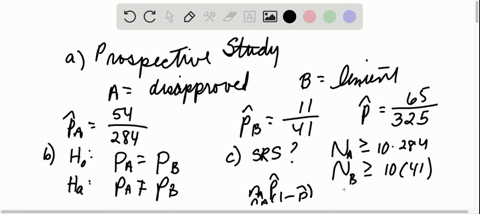 a) Prospective Study
A = disapproved B = lenient
p̂_A = 54/284 p̂_B = 11/41 p̂ = 65/325
b) H₀: P_A = P_B c) SRS? N_A ≥ 10·284
Ha: P_A ≠ P_B N_B ≥ 10(41)
n_A p̂ (1-p̂)